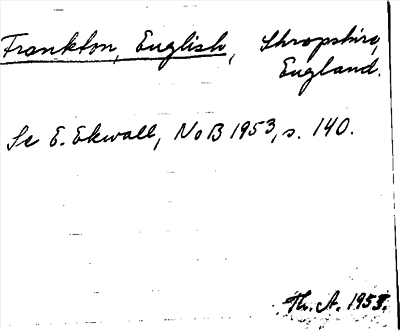 Frankton, English, Shropshire,
England.
Se E. Ekwall, NoB 1953, s. 140.
Th. A. 1953.